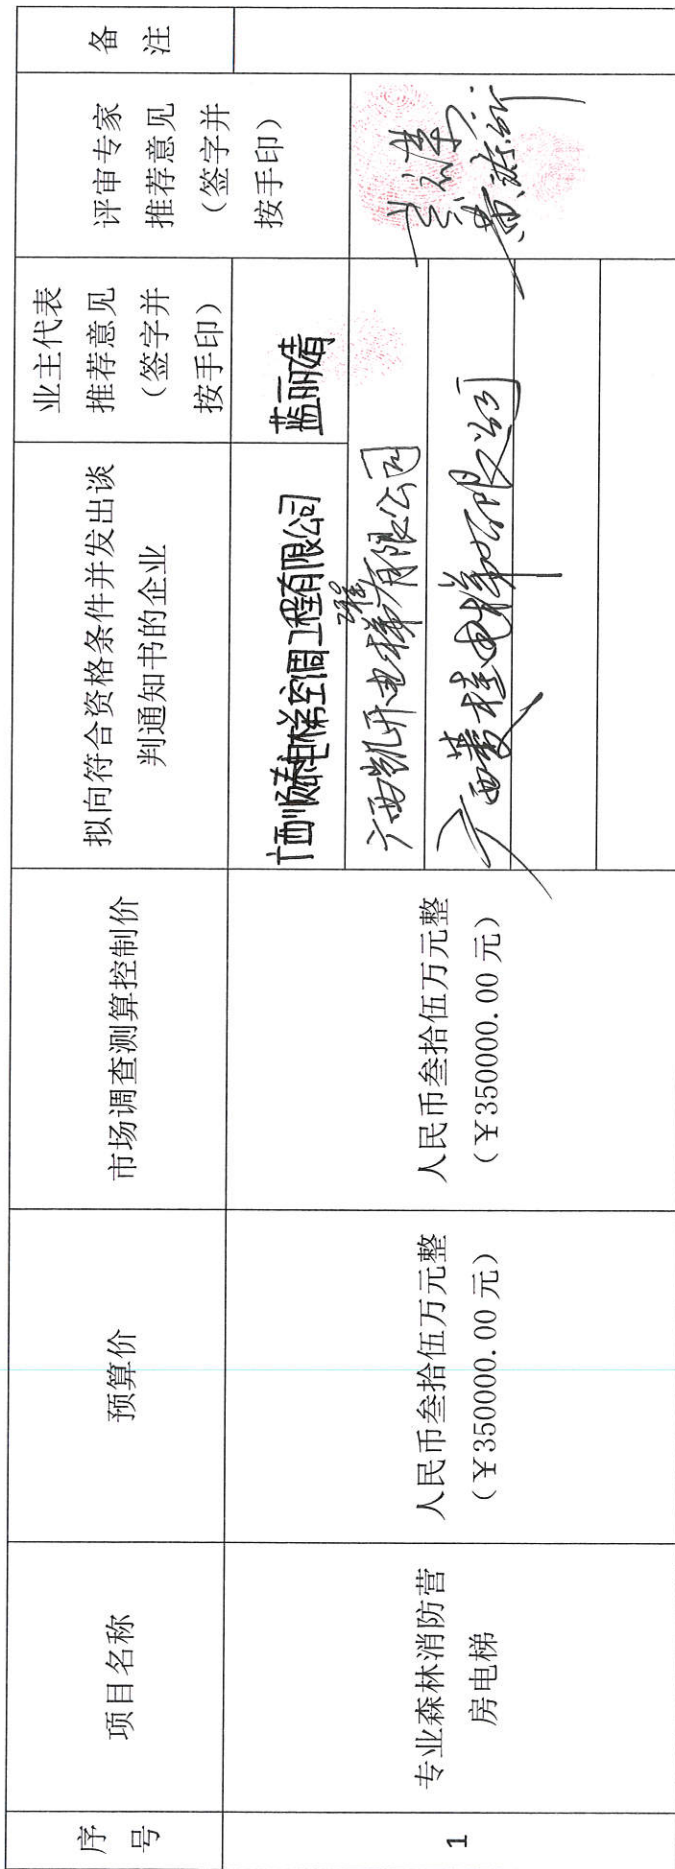 序
号
项目名称
预算价
市场调查测算控制价
拟向符合资格条件并发出谈
判通知书的企业
业主代表
推荐意见
（签字并
按手印）
评审专家
推荐意见
（签字并
按手印）
备
注
1
专业森林消防营
房电梯
人民币叁拾伍万元整
（￥350000.00 元）
人民币叁拾伍万元整
（￥350000.00 元）
电梯空调工程有限公司
广西凯升电梯工程有限公司
广西菱桂电梯有限公司
蓝丽婧